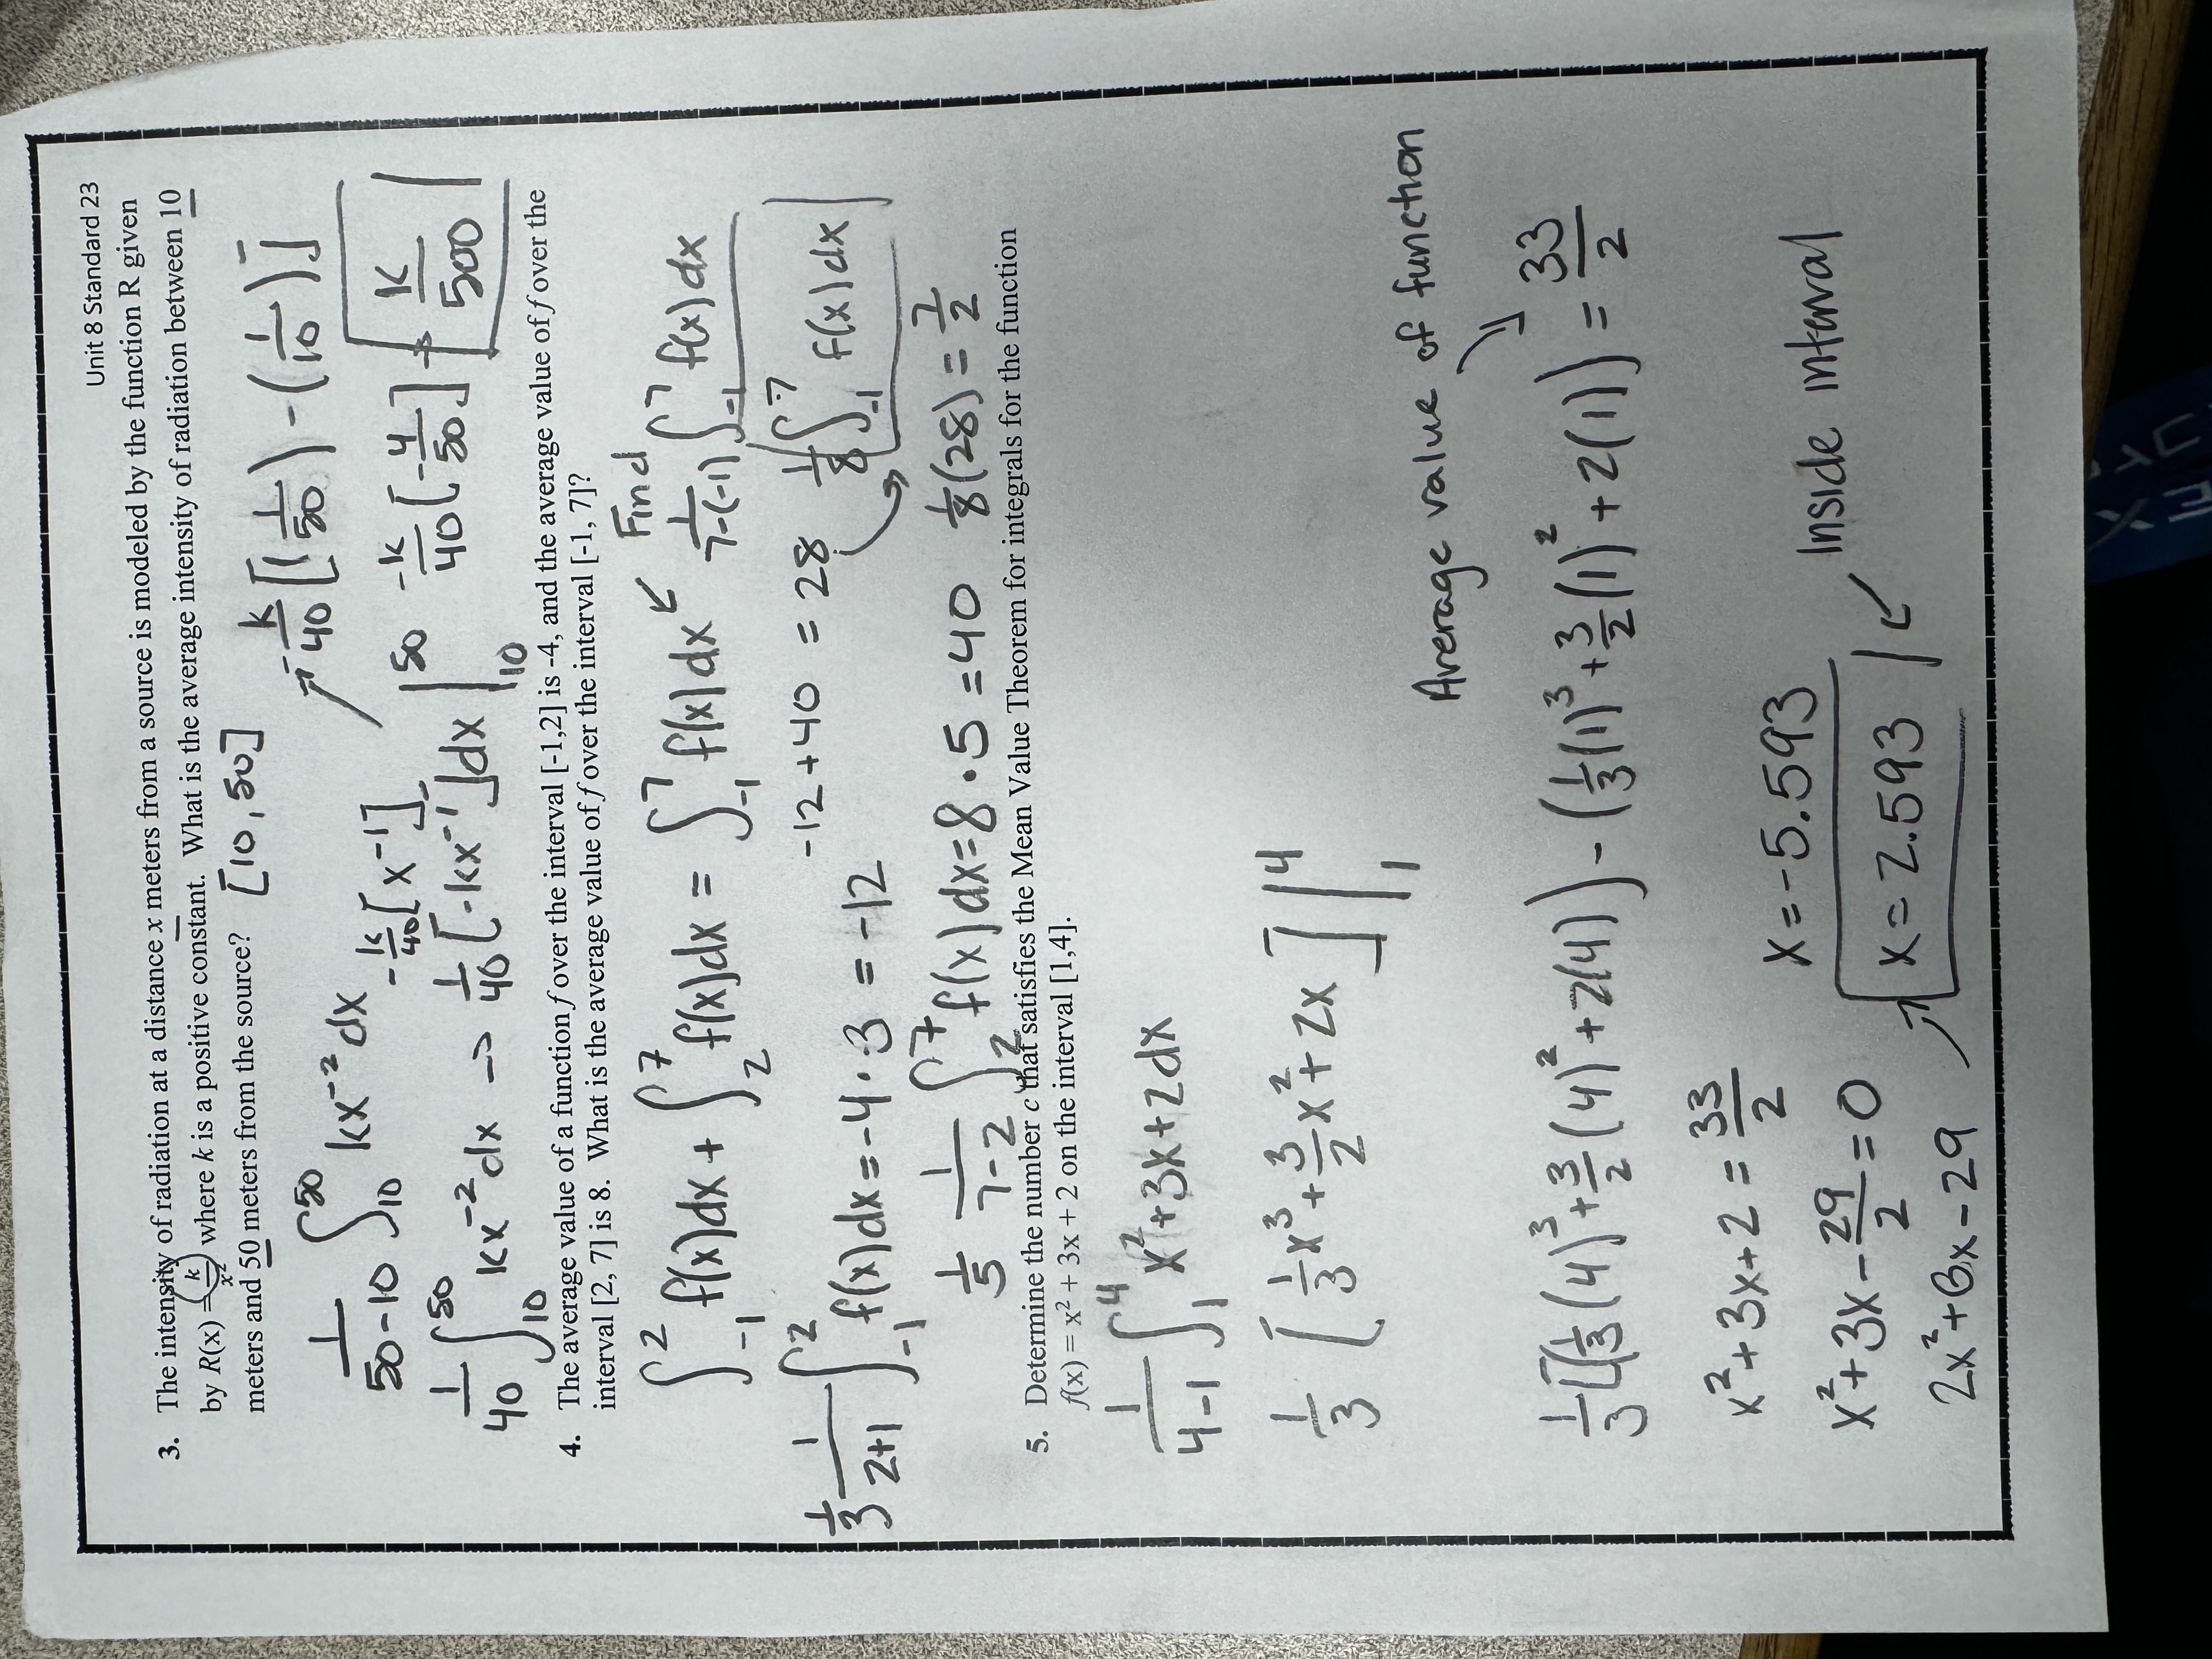 Unit 8 Standard 23
3. The intensity of radiation at a distance x meters from a source is modeled by the function R given
by R(x) = k/x² where k is a positive constant. What is the average intensity of radiation between 10
meters and 50 meters from the source? [10, 50]
1/(50-10) ∫₁₀⁵⁰ kx⁻² dx
-k/40 [x⁻¹]
-k/40 [(1/50) - (1/10)]
1/40 ∫₁₀⁵⁰ kx⁻² dx → 1/40 [-kx⁻¹]dx |₁₀⁵⁰
-k/40 [-4/50] = k/500
4. The average value of a function f over the interval [-1,2] is -4, and the average value of f over the
interval [2, 7] is 8. What is the average value of f over the interval [-1, 7]?
∫₋₁² f(x)dx + ∫₂⁷ f(x)dx = ∫₋₁⁷ f(x)dx
Find
1/(7-(-1)) ∫₋₁⁷ f(x)dx
1/3 1/(2+1) ∫₋₁² f(x)dx = -4 · 3 = -12
-12 + 40 = 28
1/8 ∫₋₁⁷ f(x)dx
1/5 1/(7-2) ∫₂⁷ f(x)dx = 8 · 5 = 40
1/8(28) = 7/2
5. Determine the number c that satisfies the Mean Value Theorem for integrals for the function
f(x) = x² + 3x + 2 on the interval [1,4].
1/(4-1) ∫₁⁴ x²+3x+2dx
1/3 [1/3x³ + 3/2x² + 2x] |₁⁴
Average value of function
1/3[(1/3(4)³ + 3/2(4)² + 2(4)) - (1/3(1)³ + 3/2(1)² + 2(1)) = 33/2
x² + 3x + 2 = 33/2
x² + 3x - 29/2 = 0
2x² + 6x - 29
x = -5.593
x = 2.593
Inside interval